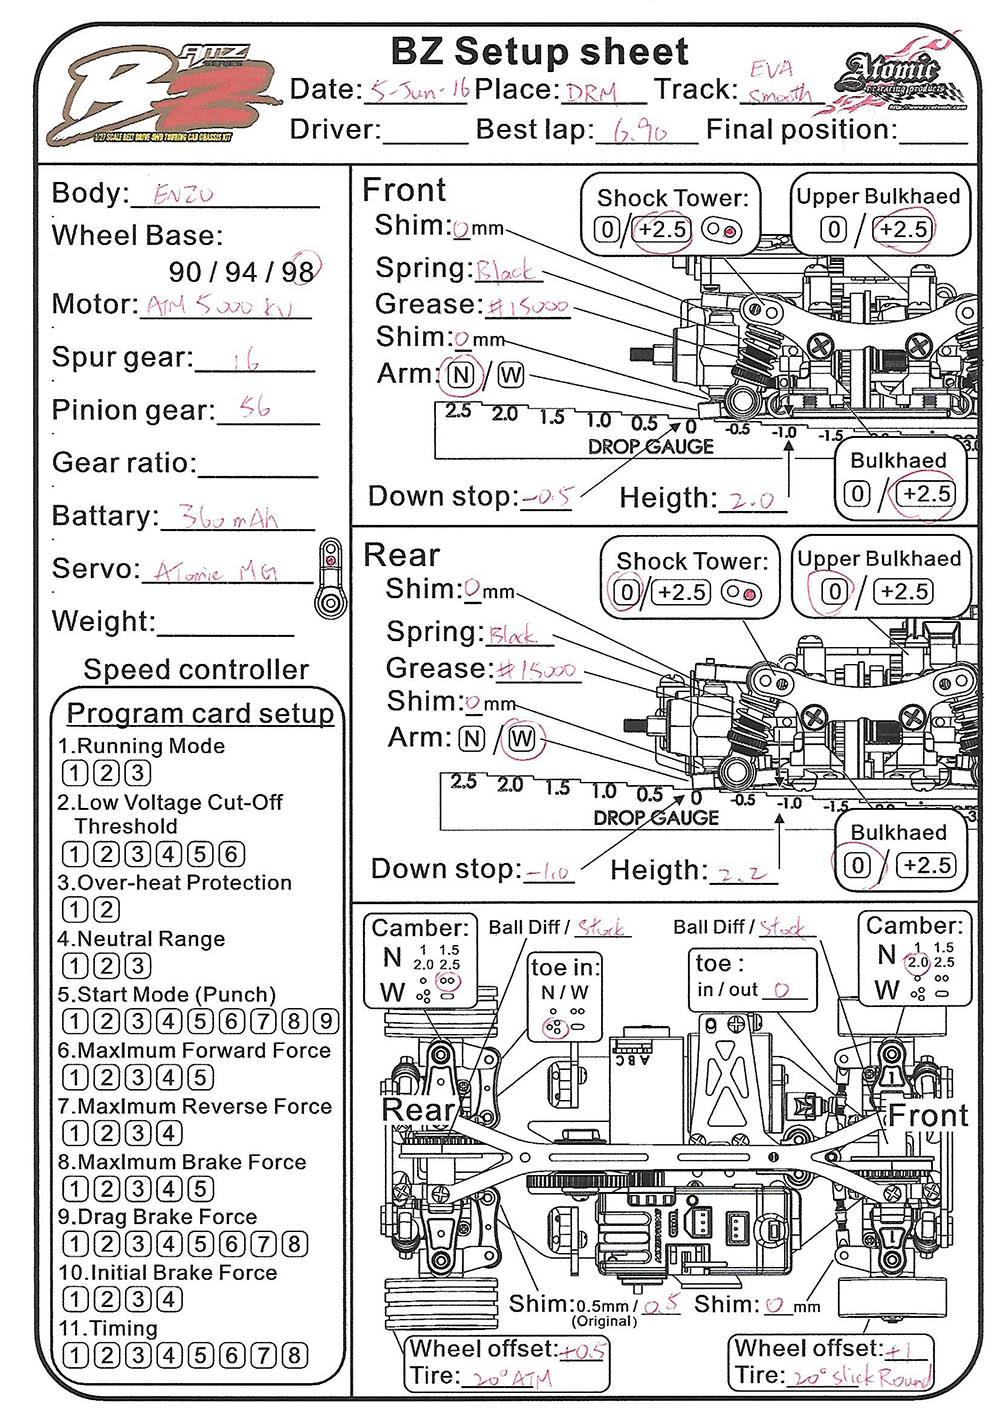 BZ Setup sheet
AMZ SERIES
BZ
1/27 SCALE BELT DRIVE 4WD TOURING CAR CHASSIS KIT
Atomic
rc racing products
http://www.rcatomic.com
Date: 5-Jun-16 Place: DRM Track: EVA Smooth
Driver: Best lap: 6.90 Final position:
Body: ENZO
Wheel Base:
90 / 94 / 98
Motor: ATM 5000 KV
Spur gear: 16
Pinion gear: 56
Gear ratio:
Battary: 360 mAh
Servo: Atomic MG
Weight:
Speed controller
Program card setup
1.Running Mode
1 2 3
2.Low Voltage Cut-Off
Threshold
1 2 3 4 5 6
3.Over-heat Protection
1 2
4.Neutral Range
1 2 3
5.Start Mode (Punch)
1 2 3 4 5 6 7 8 9
6.MaxImum Forward Force
1 2 3 4 5
7.MaxImum Reverse Force
1 2 3 4
8.MaxImum Brake Force
1 2 3 4 5
9.Drag Brake Force
1 2 3 4 5 6 7 8
10.Initial Brake Force
1 2 3 4
11.Timing
1 2 3 4 5 6 7 8
Front
Shim: 0 mm
Spring: Black
Grease: #15000
Shim: 0 mm
Arm: N / W
Shock Tower:
0 / +2.5
Upper Bulkhaed
0 / +2.5
2.5 2.0 1.5 1.0 0.5 0 -0.5 -1.0 -1.5
DROP GAUGE
Bulkhaed
0 / +2.5
Down stop: -0.5 Heigth: 2.0
Rear
Shim: 0 mm
Spring: Black
Grease: #15000
Shim: 0 mm
Arm: N / W
Shock Tower:
0 / +2.5
Upper Bulkhaed
0 / +2.5
2.5 2.0 1.5 1.0 0.5 0 -0.5 -1.0 -1.5
DROP GAUGE
Bulkhaed
0 / +2.5
Down stop: -1.0 Heigth: 2.2
Camber:
N 1 1.5
2.0 2.5
W
Ball Diff / Stock
toe in:
N / W
Ball Diff / Stock
toe :
in / out 0
Camber:
N 1 1.5
2.0 2.5
W
A B C
Rear
Front
1
1
Shim: 0.5mm / 0.5
(Original)
Shim: 0 mm
Wheel offset: +0.5
Tire: 20° ATM
Wheel offset: +1
Tire: 20° slick Round